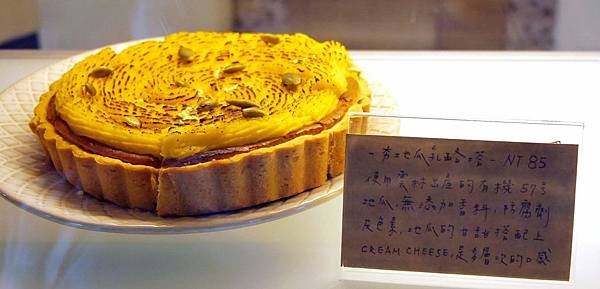 －夯地瓜乳酪塔－NT 85
使用雲林出產的有機57号
地瓜,無添加香料,防腐劑
及色素,地瓜的甘甜搭配上
CREAM CHEESE,是多層次的口感